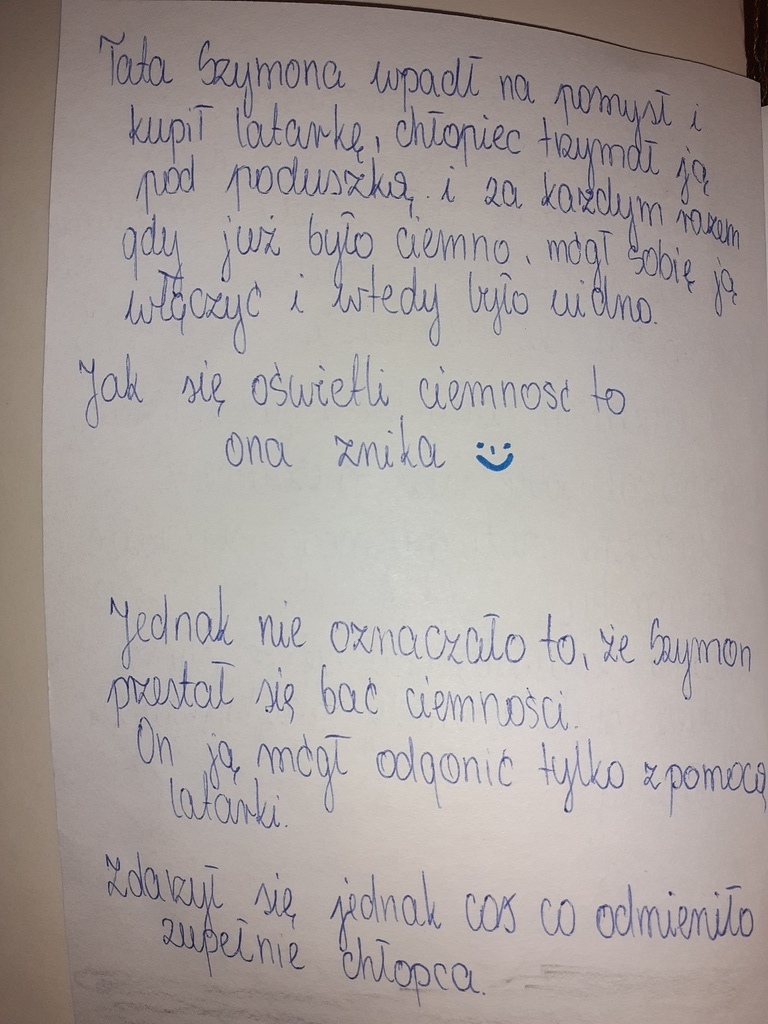 Tata Szymona wpadł na pomysł i
kupił latarkę, chłopiec trzymał ją
pod poduszką i za każdym razem
gdy już było ciemno, mógł sobię ją
włączyć i wtedy było widno.
Jak się oświetli ciemność to
ona znika
Jednak nie oznaczało to, że Szymon
przestał się bać ciemności.
On ją mógł odgonić tylko z pomocą
latarki.
Zdarzył się jednak coś co odmieniło
zupełnie chłopca.